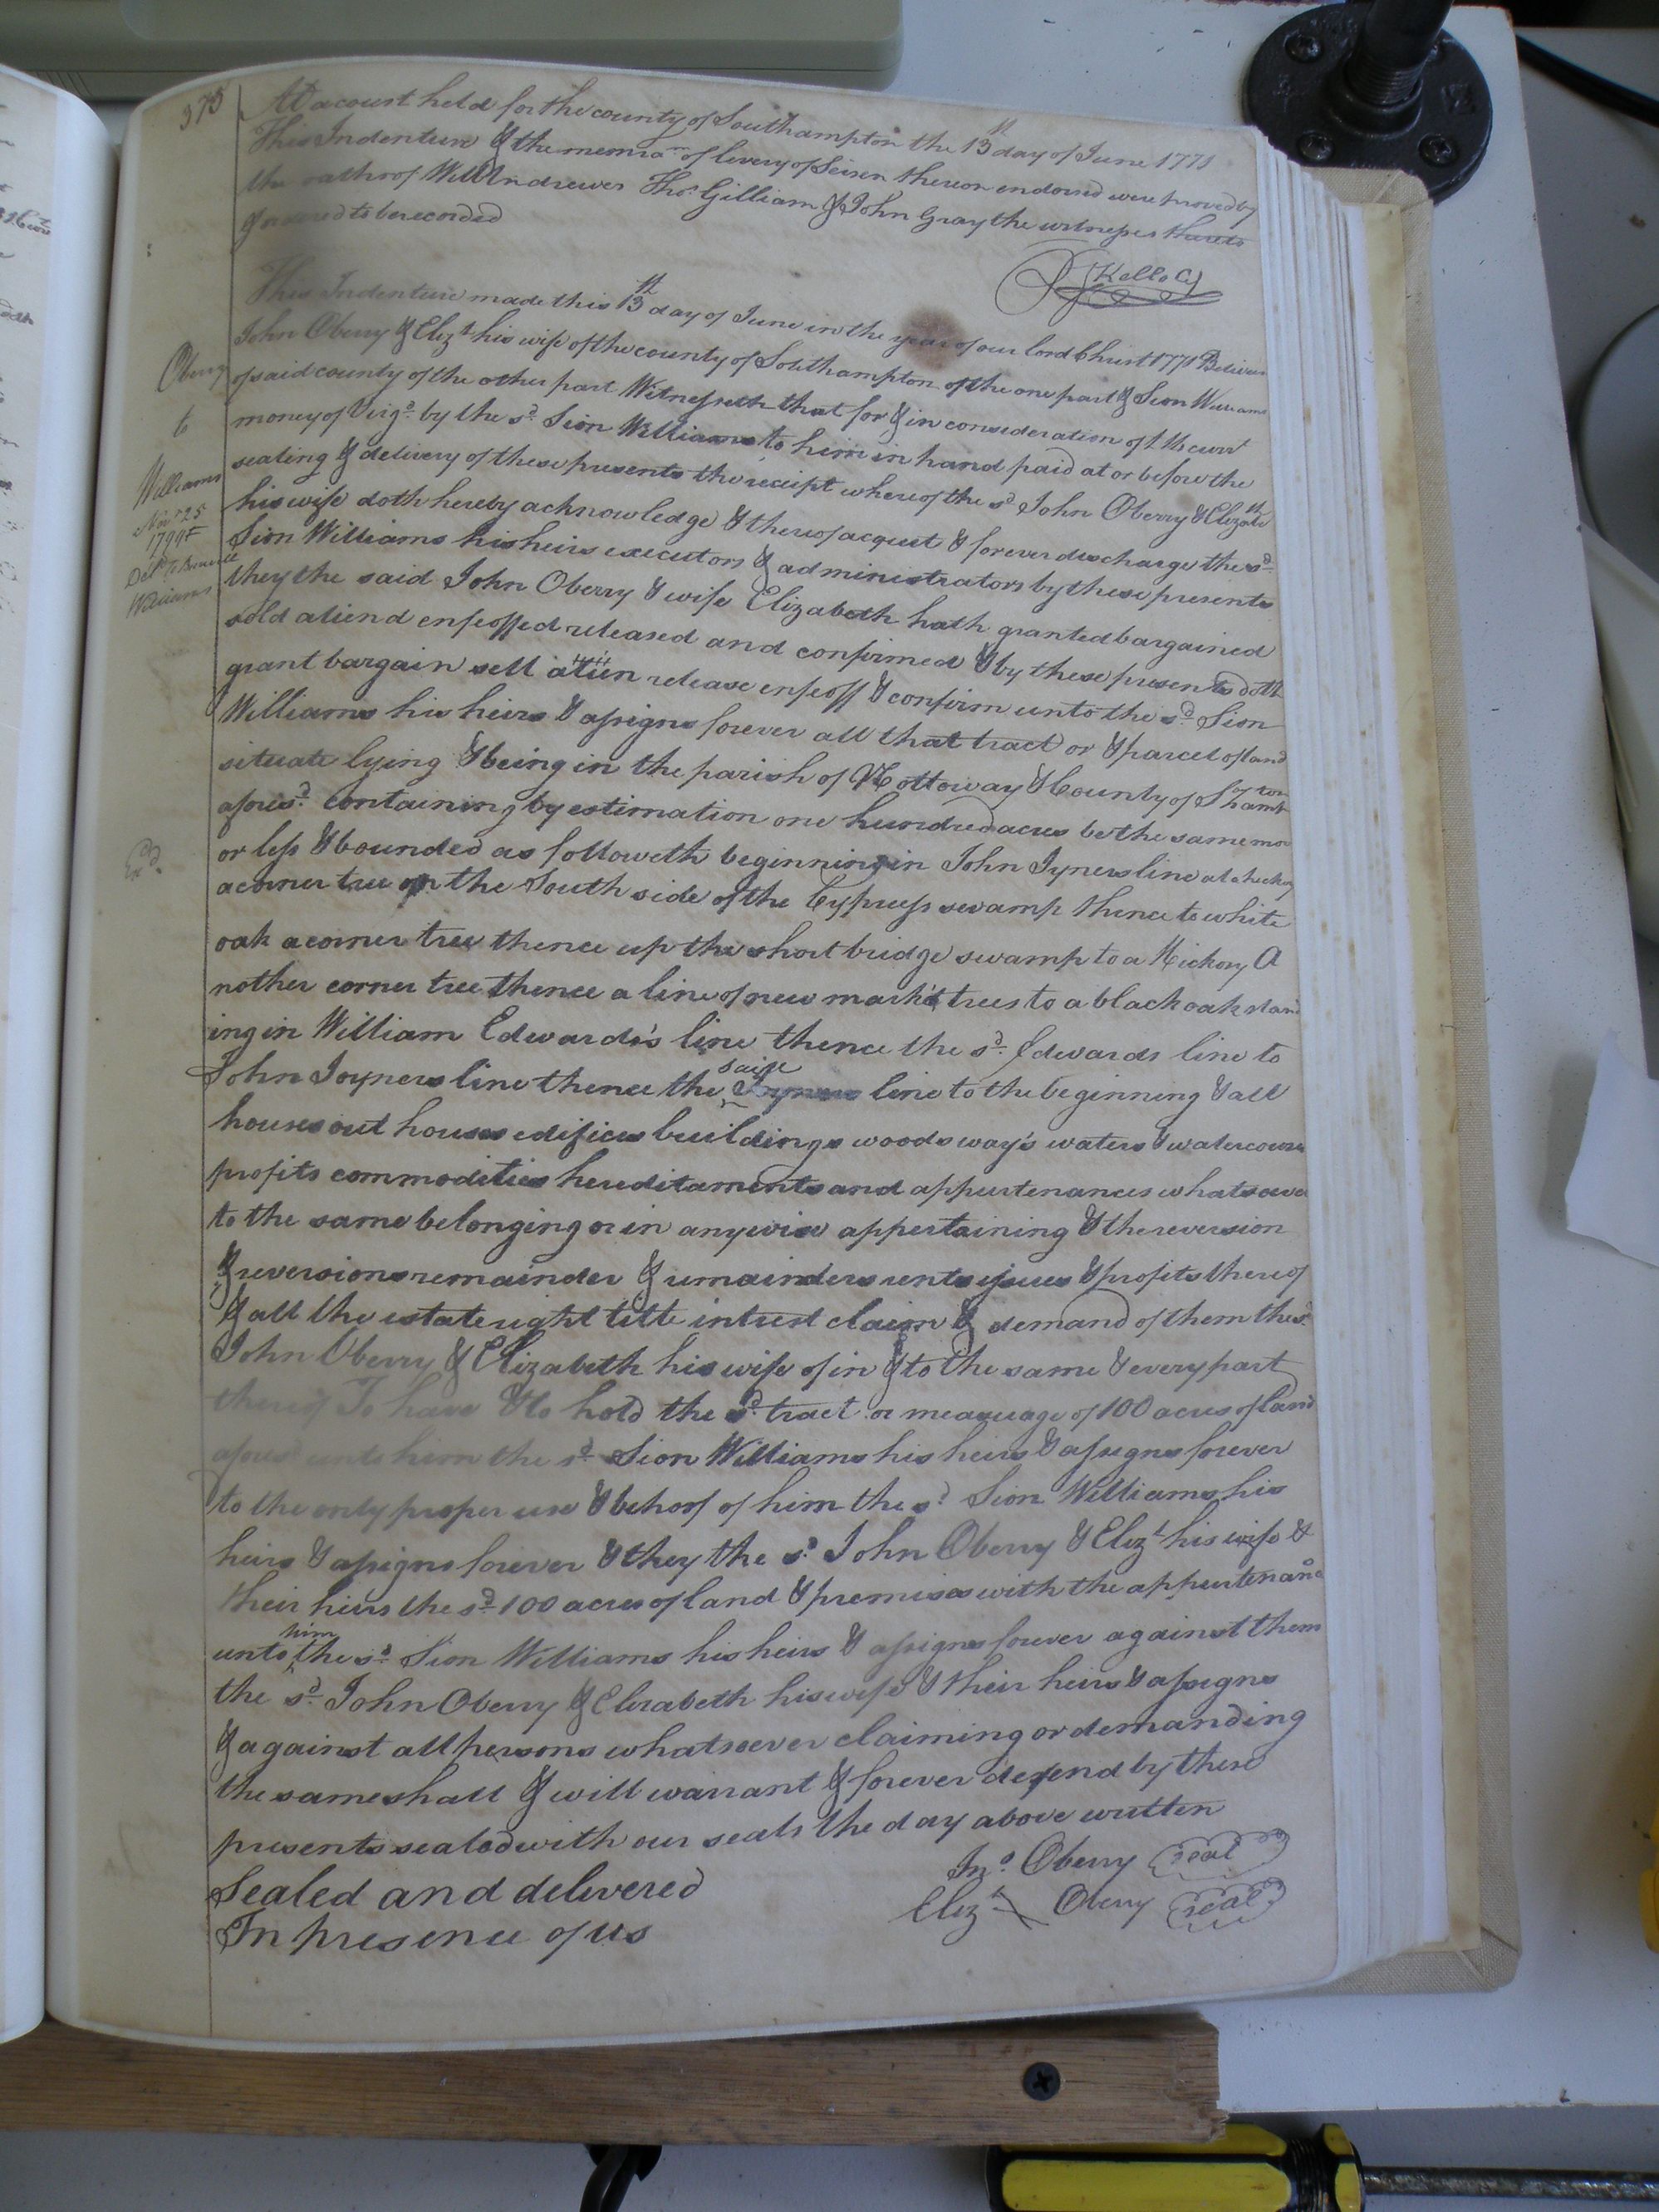 375
At a court held for the county of Southampton the 13th day of June 1771
This Indenture & the memra.m of livery of Seisen thereon endorsed were proved by
the oaths of Will Andrewes Thos. Gilliam & John Gray the witnesses thereto
& ordered to be recorded
Kello C
This Indenture made this 13th day of June in the year of our lord Christ 1771 Between
John Oberry & Elizt his wife of the county of Southampton of the one part & Sion Williams
of said county of the other part Witnesseth that for & in consideration of the curt
money of Virga. by the sd. Sion Williams to him in hand paid at or before the
sealing & delivery of these presents the receipt whereof the sd. John Oberry & Elizabth
his wife doth hereby acknowledge & thereof acquet & forever discharge the sd.
Sion Williams his heirs executors & administrators by these presents
they the said John Oberry & wife Elizabeth hath granted bargained
sold aliend enfeoffed released and confirmed & by these presents doth
grant bargain sell alien release enfeoff & confirm unto the sd. Sion
Williams his heirs & assigns forever all that tract or & parcel of land
situate lying & being in the parish of Nottoway & County of Shampton
aforesd. containing by estimation one hundred acres be the same mor
or less & bounded as followeth beginning in John Jyners line at a hickory
a corner tree on the South side of the Cypress swamp thence to white
oak a corner tree thence up the short bridge swamp to a Hickory A
nother corner tree thence a line of new mark'd trees to a black oak stand
ing in William Edwards's line thence the sd. Edwards line to
John Joyners line thence the said line to the beginning & all
houses out houses edifices buildings woods way's waters & watercourses
profits commodities hereditaments and appurtenances whatsoever
to the same belonging or in anywise appertaining & the reversion
& reversions remainder & remainders rents issues & profits thereof
& all the estate right title intrest claim & demand of them the sd.
John Oberry & Elizabeth his wife of in & to the same & every part
thereof To have & to hold the sd. tract or measuage of 100 acres of land
aforesd unto him the sd. Sion Williams his heirs & assigns forever
to the only proper use & behoof of him the sd. Sion Williams his
heirs & assigns forever & they the sd. John Oberry & Elizt his wife &
their heirs the sd. 100 acres of land & premises with the appurtenanc
unto him the sd. Sion Williams his heirs & assigns forever against them
the sd. John Oberry & Elizabeth his wife & their heirs & assigns
& against all persons whatsoever claiming or demanding
the same shall & will warrant & forever defend by these
presents sealed with our seals the day above written
Sealed and delivered
In presence of us
Jno. Oberry seal
Elizt Oberry seal
Oberry
to
Williams
Novr 25
1799
Deld to
Williams
Exd.